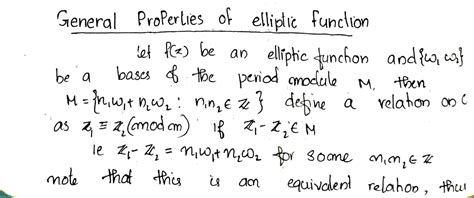 General Properties of elliptic function
let f(z) be an elliptic function and {ω₁ ω₂}
be a bases of the period module M. then
M = {n₁ω₁ + n₂ω₂ : n₁n₂ ∈ Z } define a relation on C
as z₁ ≡ z₂ (mod m) if z₁ - z₂ ∈ M
ie z₁ - z₂ = n₁ω₁ + n₂ω₂ for some n₁n₂ ∈ Z
note that this is an equivalent relation, thus